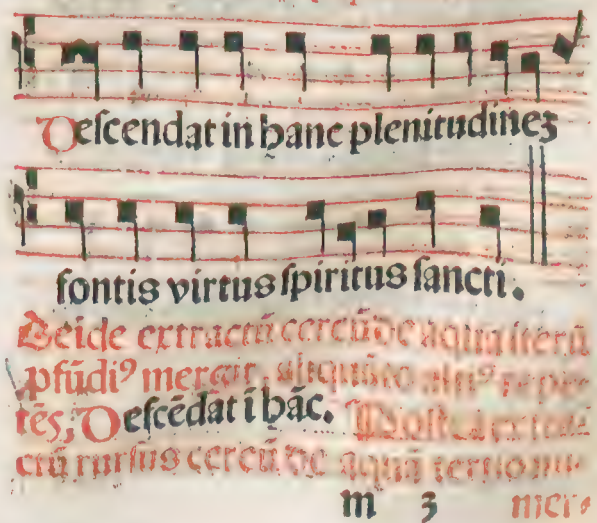 Deſcendat in hanc plenitudineꝫ
fontis virtus ſpiritus ſancti.
Deide extractū cereū de aqua iterū
ꝓfūdiꝰ mergit, aliquāto altiꝰ repe-
tēs, Deſcēdat ī hāc. Poſtea extra-
ctū rurſus cereū de aqua tertio im-
m 3 mer-